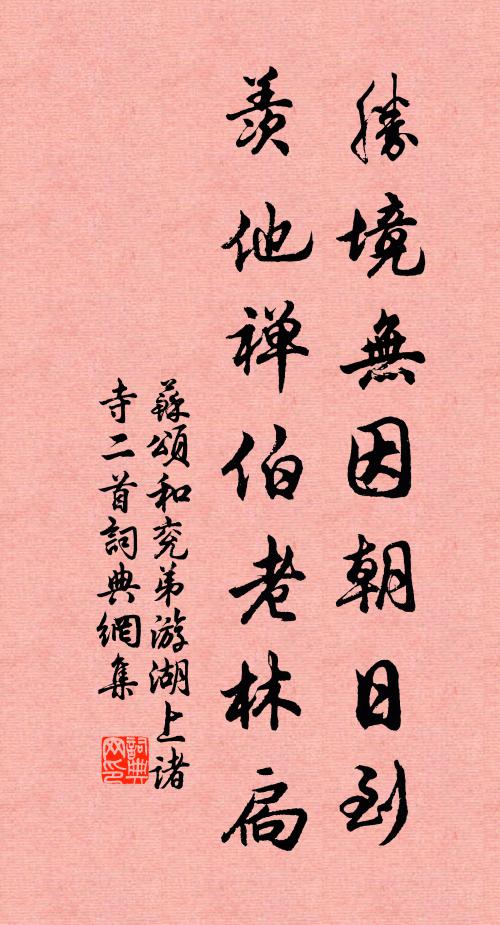 勝境無因朝日到
羨他禅伯老林扃
蘇頌和兖弟游湖上诸
寺二首詞典網集
詞典
网印